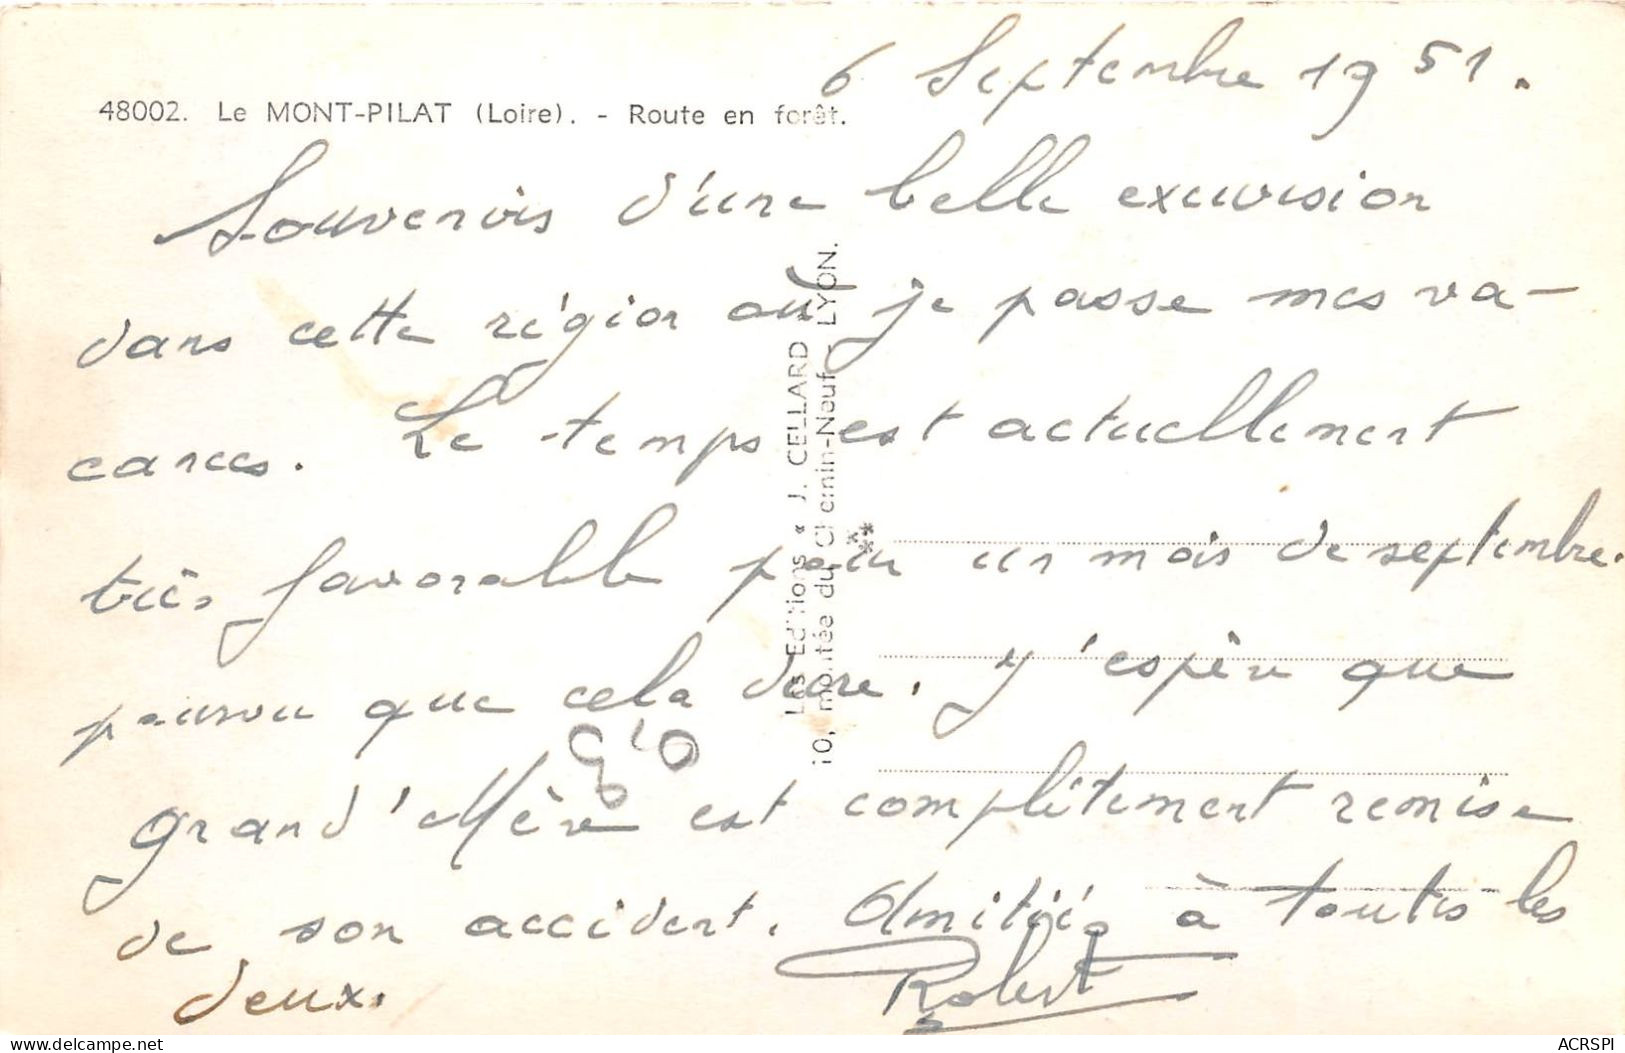 6 Septembre 1951.
48002. Le MONT-PILAT (Loire). - Route en forêt.
Souvenirs d'une belle excursion
dans cette région où je passe mes va-
cances. Le temps est actuellement
très favorable pour un mois de septembre.
pourvu que cela dure. J'espère que
grand'Mère est complètement remise
de son accident. Amitiés à toutes les
deux.
Robert
Les Editions « J. CELLARD
10, montée du Chemin-Neuf - LYON.
delcampe.net
ACRSPI